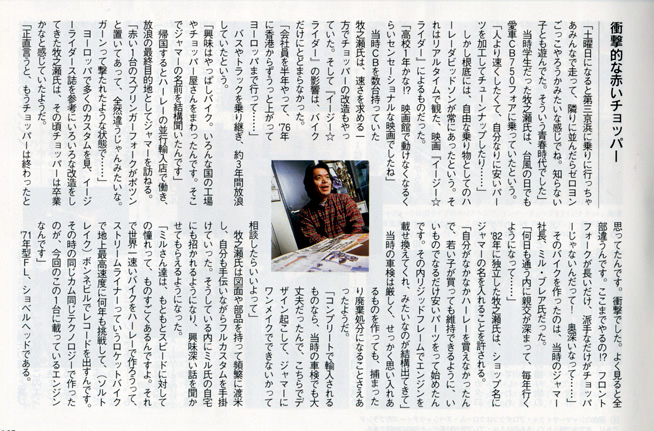 衝撃的な赤いチョッパー
「土曜日になると第三京浜に乗りに行っちゃ
あみんなで走って、隣りに並んだらゼロヨン
ごっこやろうかみたいな感じでね。知らない
子とも遊んでた。そういう青春時代でした」
当時学生だった牧之瀬氏は、台風の日でも
愛車CB750フォアに乗っていたという。
「人より速くしたくて、自分なりに安いパー
ツを加工してチューンナップしたり……」
しかし根底には、自由な乗り物としてのハ
ーレーダビッドソンが常にあったという。そ
れはリアルタイムで観た、映画『イージー☆
ライダー』によるものだった。
「高校1年かな!? 映画館で動けなくなるく
らいセンセーショナルな映画でしたね」
当時CBを数台持っていた
牧之瀬氏は、速さを求める一
方でチョッパーの改造もやっ
ていた。そして『イージー☆
ライダー』の影響は、バイク
だけにとどまらなかった。
「会社員を半年やって、'76年
に香港からずうっと上がって
ヨーロッパまで行って……」
バスやトラックを乗り継ぎ、約3年間放浪
していたという。
「興味はやっぱしバイク。いろんな国の工場
やチョッパー屋さんをまわったんです。そこ
でジャマーの名前を結構聞いたんです」
帰国するとハーレーの並行輸入店で働き、
放浪の最終目的地としてジャマーを訪ねる。
「赤い1台のスプリンガーフォークがボソン
と置いてあって、全然違うじゃんみたいな。
ガーンって撃たれたような状態で……」
ヨーロッパで多くのカスタムを見、イージ
ーライダース誌を参考にいろいろな改造をし
てきた牧之瀬氏は、その頃チョッパーは卒業
かなと感じていたようだ。
「正直言うと、もうチョッパーは終わったと
思ってたんです。衝撃でした。よく見ると全
部違うんです。ここまでやるの!? フロント
フォークが長いだけ、派手なだけがチョッパ
ーじゃないんだって! 奥深いなって……」
そのバイクを作ったのは、当時のジャマー
社長、ミル・ブレア氏だった。
「何日も通う内に親交が深まって、毎年行く
ようになって……」
'82年に独立した牧之瀬氏は、ショップ名に
ジャマーの名を入れることを許される。
「自分がなかなかハーレーを買えなかったん
で、若い子が買っても維持できるように、い
いものでなるだけ安いパーツをって始めたん
です。その内リジッドフレームでエンジンを
載せ換えてくれ、みたいなのが結構出てきて」
当時の車検は厳しく、せっかく思い入れあ
るものを作っても、捕まった
り廃棄処分になることさえあ
ったようだ。
「コンプリートで輸入される
ものなら、当時の車検でも大
丈夫だったんで、こちらでデ
ザイン起こして、ジャマーに
ワンメイクでできないかって
相談したらいいよって」
牧之瀬氏は図面や部品を持って頻繁に渡米
し、自分も手伝いながらフルカスタムを手掛
けていった。そうしている内にミル氏の自宅
にも招かれるようになり、興味深い話を聞か
せてもらえるようになった。
「ミルさん達は、もともとスピードに対して
の憧れって、ものすごくあるんですよ。それ
で世界一速いバイクをハーレーで作ろうって、
ストリームライナーっていうロケットバイク
で地上最高速度に何年も挑戦して、(ソルト
レイク)ボンネビルでレコードを出すんです。
その時の同じカム同じテクノロジーで作った
のが、今回のこの1台に載っているエンジン
なんです」
'71年型FL、ショベルヘッドである。